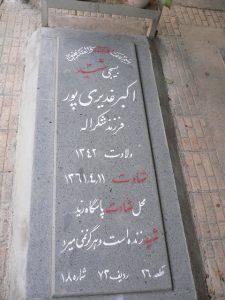 بسیجی شهید
اکبر غدیری پور
فرزند شکراله
ولادت ۱۳۴۲
شهادت ۱۳۶۱٫۴٫۱۱
محل شهادت پاسگاه زید
شهید زنده است و هرگز نمی میرد
قطعه ۲۶ ردیف ۷۳ شماره ۱۸